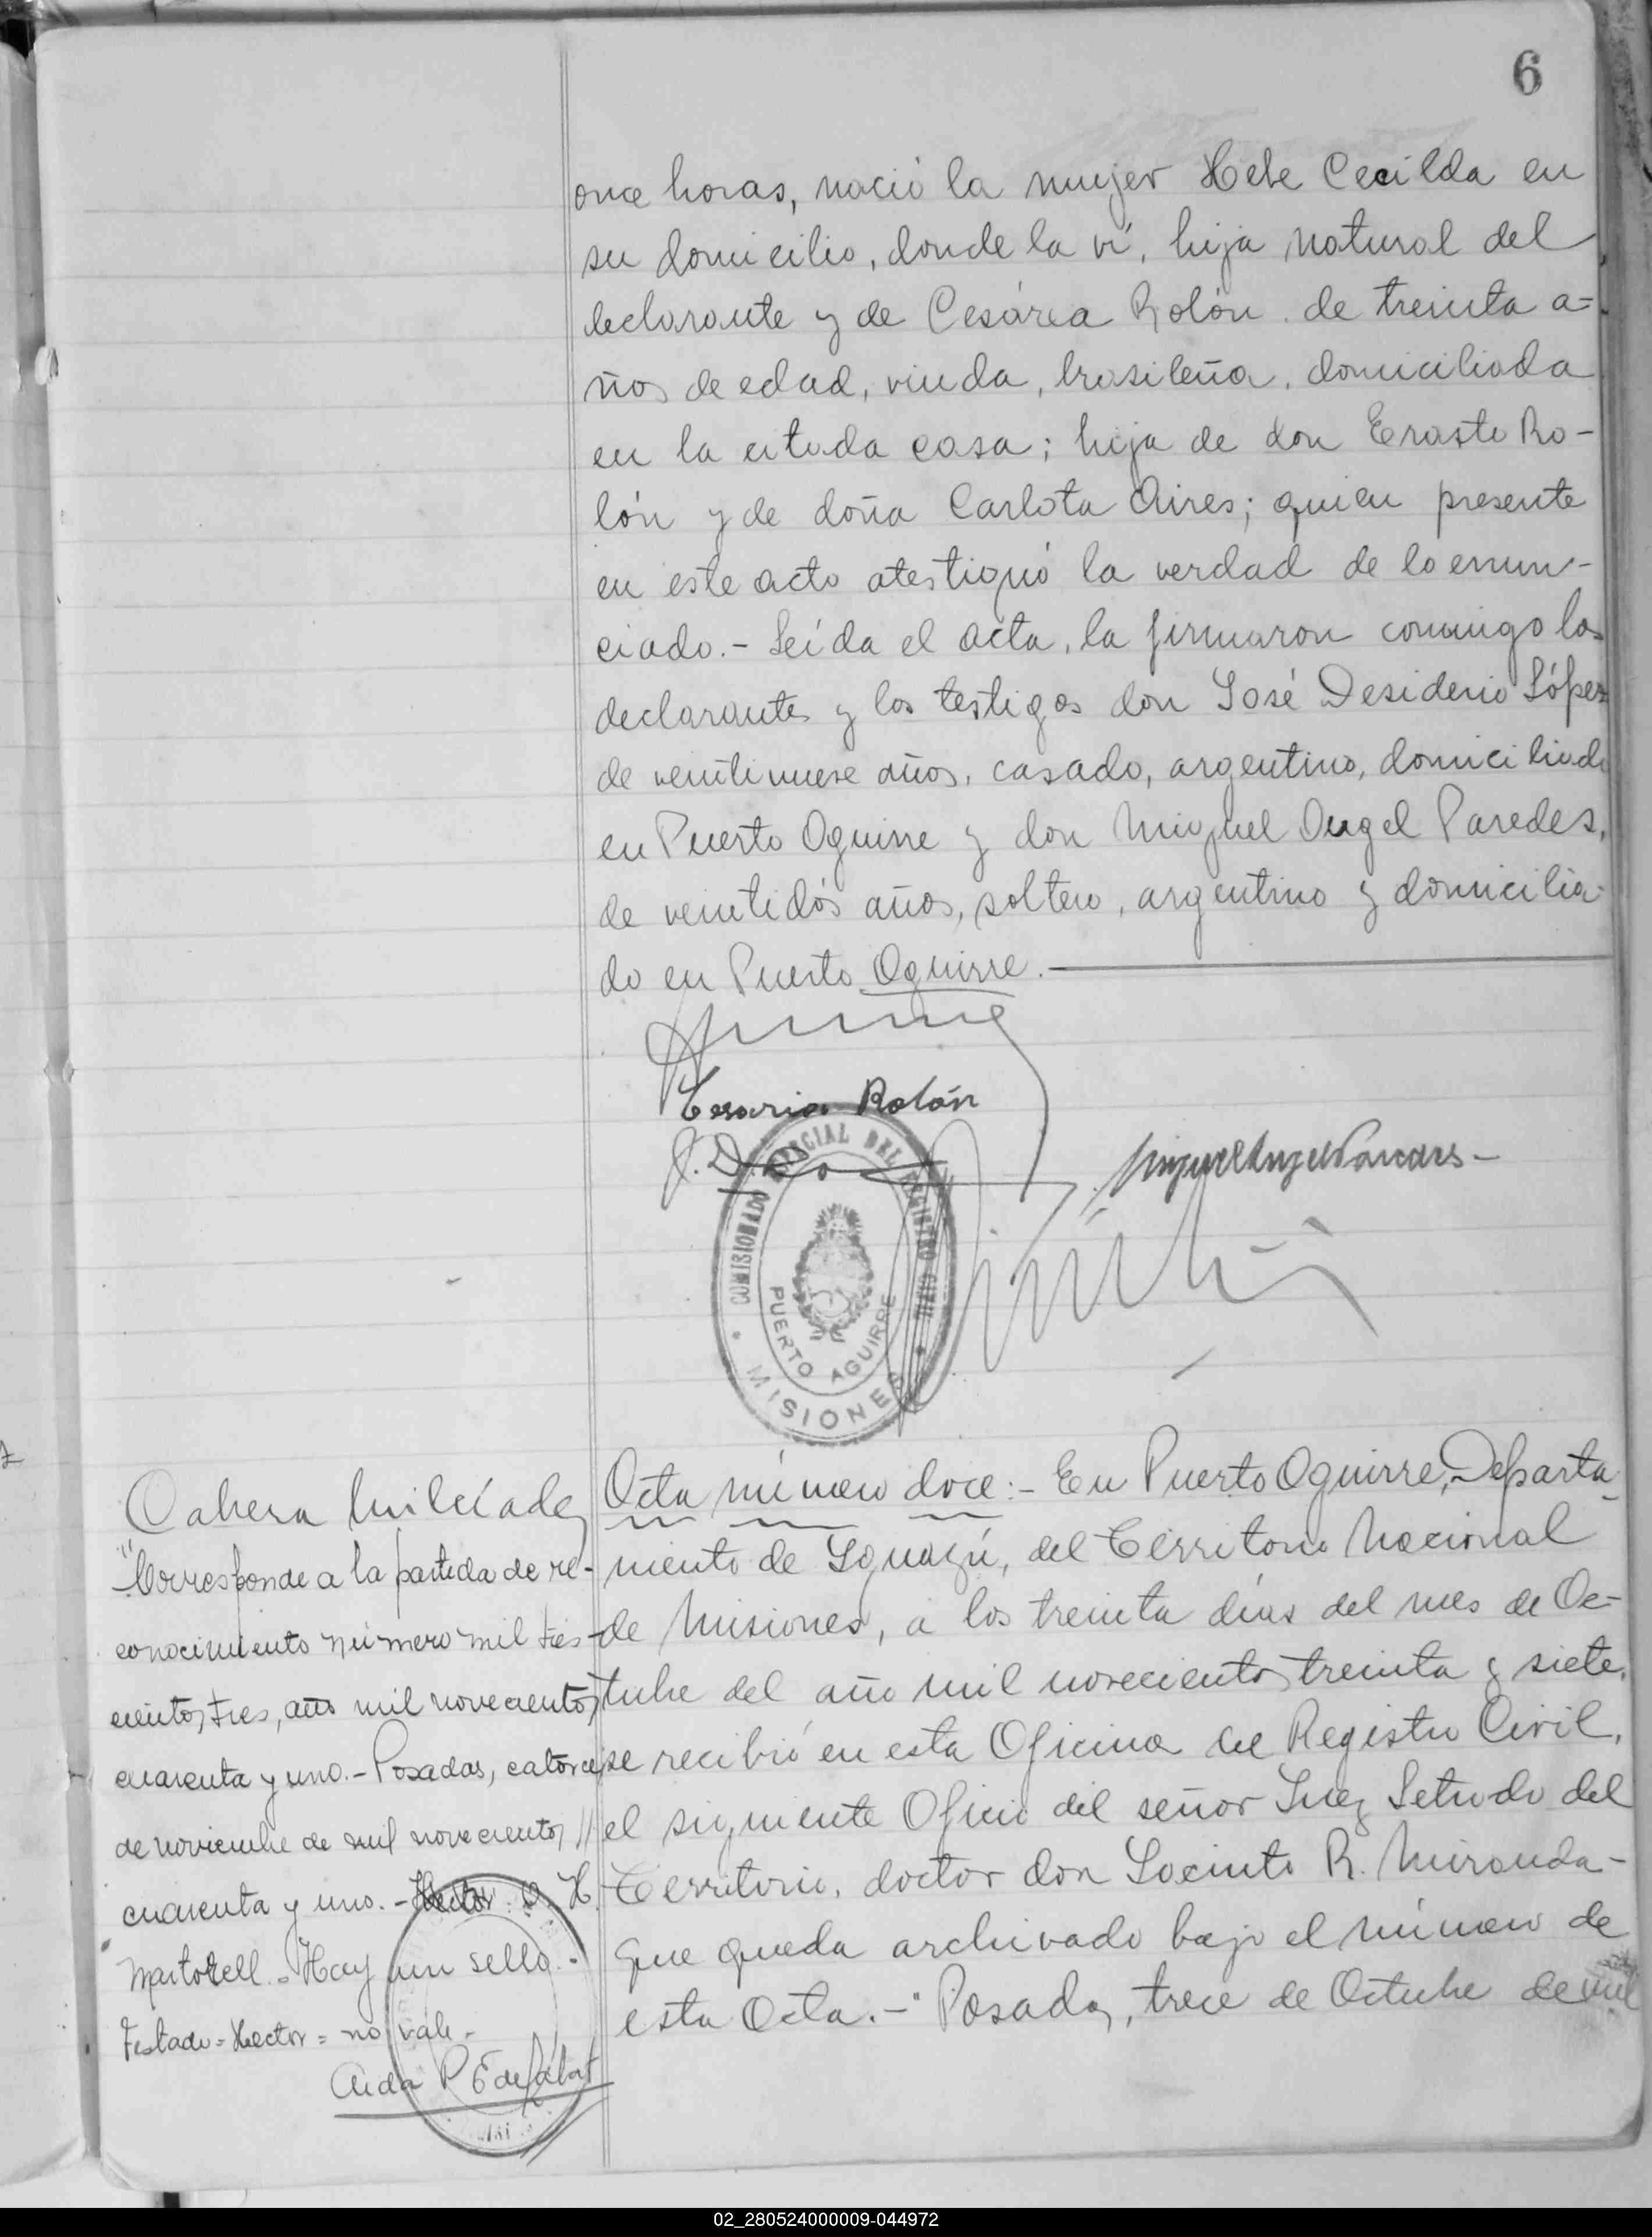 6
once horas, nació la mujer Hebe Cecilda en
su domicilio, donde la ví, hija natural del
declarante y de Cesárea Rolón de treinta a=
ños de edad, viuda, brasileña, domiciliada
en la citada casa; hija de don Erasto Ro-
lón y de doña Carlota Aires; quien presente
en este acto atestiguó la verdad de lo enun-
ciado.- Leída el acta, la firmaron conmigo los
declarantes y los testigos don José Desiderio López
de veintinueve años, casado, argentino, domiciliado
en Puerto Aguirre y don Miguel Angel Paredes,
de veintidós años, soltero, argentino y domicilia-
do en Puerto Aguirre.-
Cesaria Rolón
Miguel Angel Paredes-
COMISIONADO ESPECIAL DEL REGISTRO CIVIL
PUERTO AGUIRRE
MISIONES
Cabera Milcíades
"Corresponde a la partida de re-
conocimiento número mil tres-
cientos tres, año mil novecientos
cuarenta y uno.- Posadas, catorce
de noviembre de mil novecientos //
cuarenta y uno.- Hector O. H.
Martorell.= Hay un sello.-
Testado= Hector= no vale-
Aida P E de
Acta número doce:- En Puerto Aguirre, Departa-
mento de Iguazú, del Territorio Nacional
de Misiones, a los treinta días del mes de Oc-
tubre del año mil novecientos treinta y siete,
se recibió en esta Oficina del Registro Civil,
el siguiente Oficio del señor Juez Letrado del
Territorio, doctor don Jacinto R. Miranda-
que queda archivado bajo el número de
esta Acta.-"Posadas, trece de Octubre de mil
02_280524000009-044972